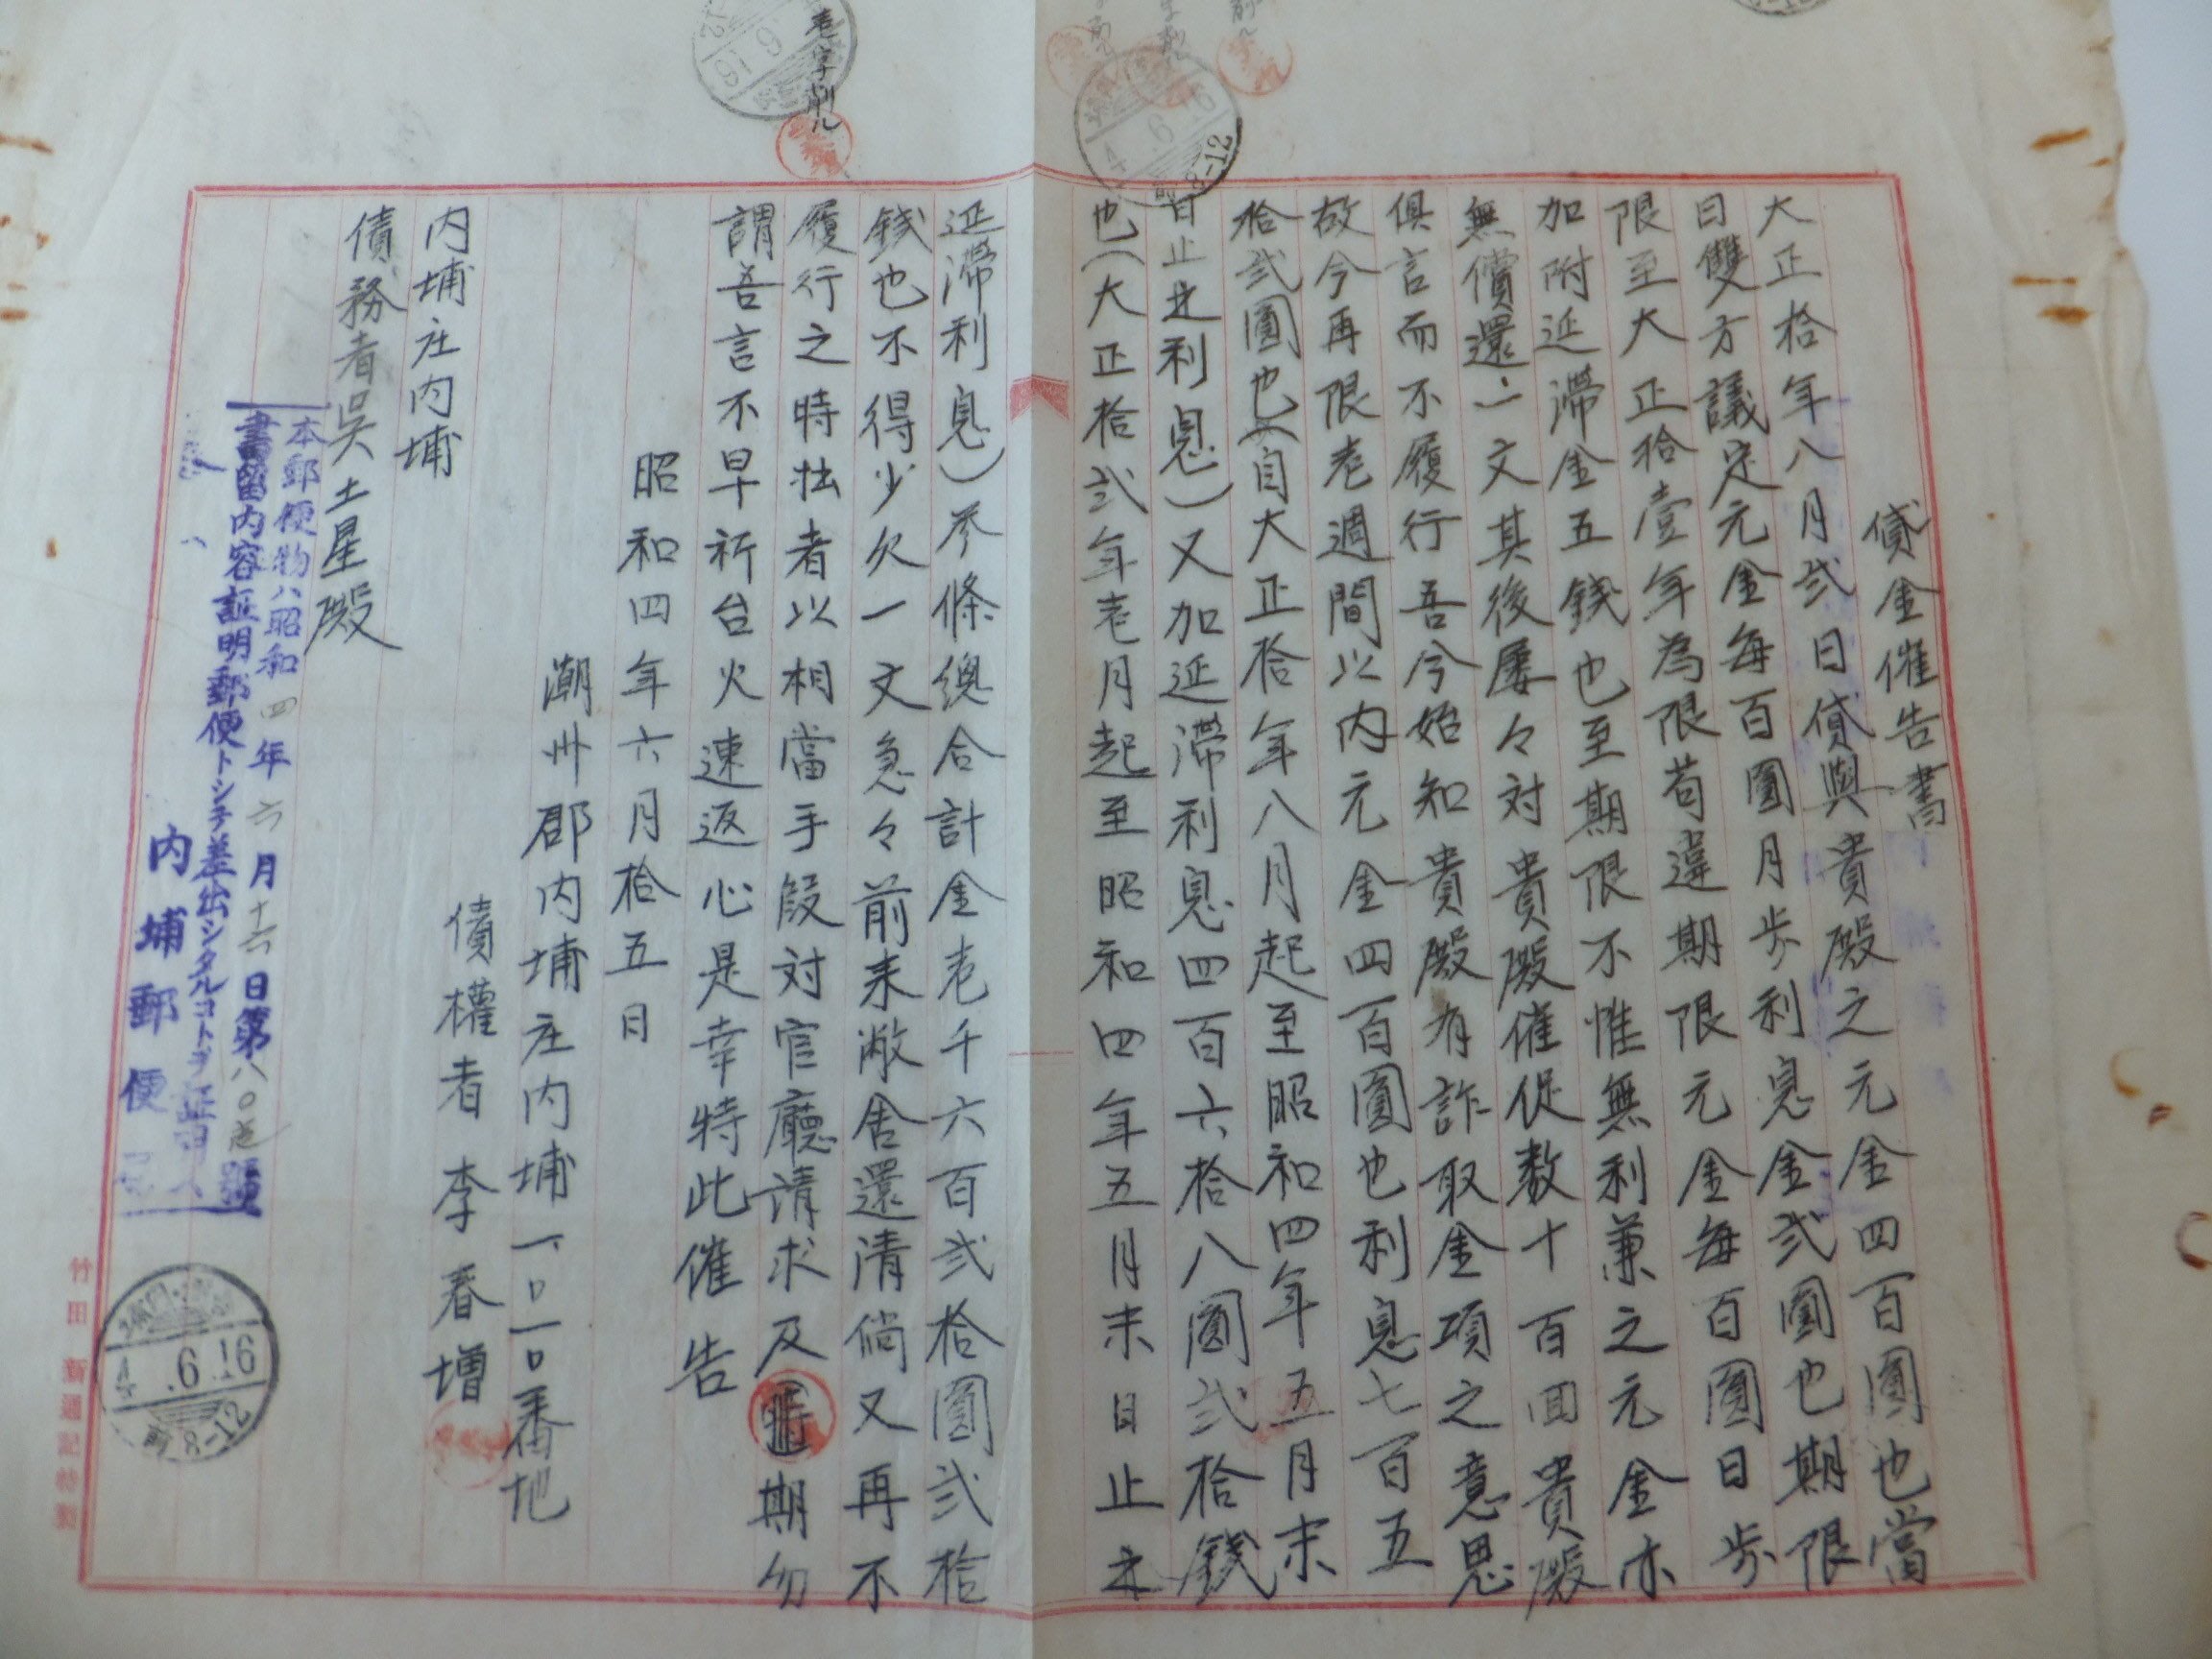 貸金催告書
大正拾年八月弍日貸與貴殿之元金四百圓也當
日雙方議定元金每百圓月步利息金弍圓也期限
限至大正拾壹年為限苟違期限元金每百圓日步
加附延滯金五錢也至期限不惟無利兼之元金亦
無償還一文其後屢々対貴殿催促数十百回貴殿
俱言而不履行吾今始知貴殿有詐取金項之意思
故今再限壱週間以內元金四百圓也利息七百五
拾弍圓也(自大正拾年八月起至昭和四年五月末
日止之利息)又加延滯利息四百六拾八圓弍拾錢
也(大正拾弍年壱月起至昭和四年五月末日止之
延滯利息)參條總合計金壱千六百弍拾圓弍拾
錢也不得少欠一文急々前来敝舍還清倘又再不
履行之時拙者以相當手段対官廳請求及期勿
謂吾言不早祈台火速返心是幸特此催告
昭和四年六月拾五日
潮州郡內埔庄內埔一〇一〇番地
債權者 李春增
內埔庄內埔
債務者吳土星殿
本郵便物ハ昭和四年六月十六日第八〇壱號
書留內容証明郵便トシテ差出シタルコトヲ証明ス
內埔郵便
壱字削ル
4.6.16
前8-12
竹田 新通記特製